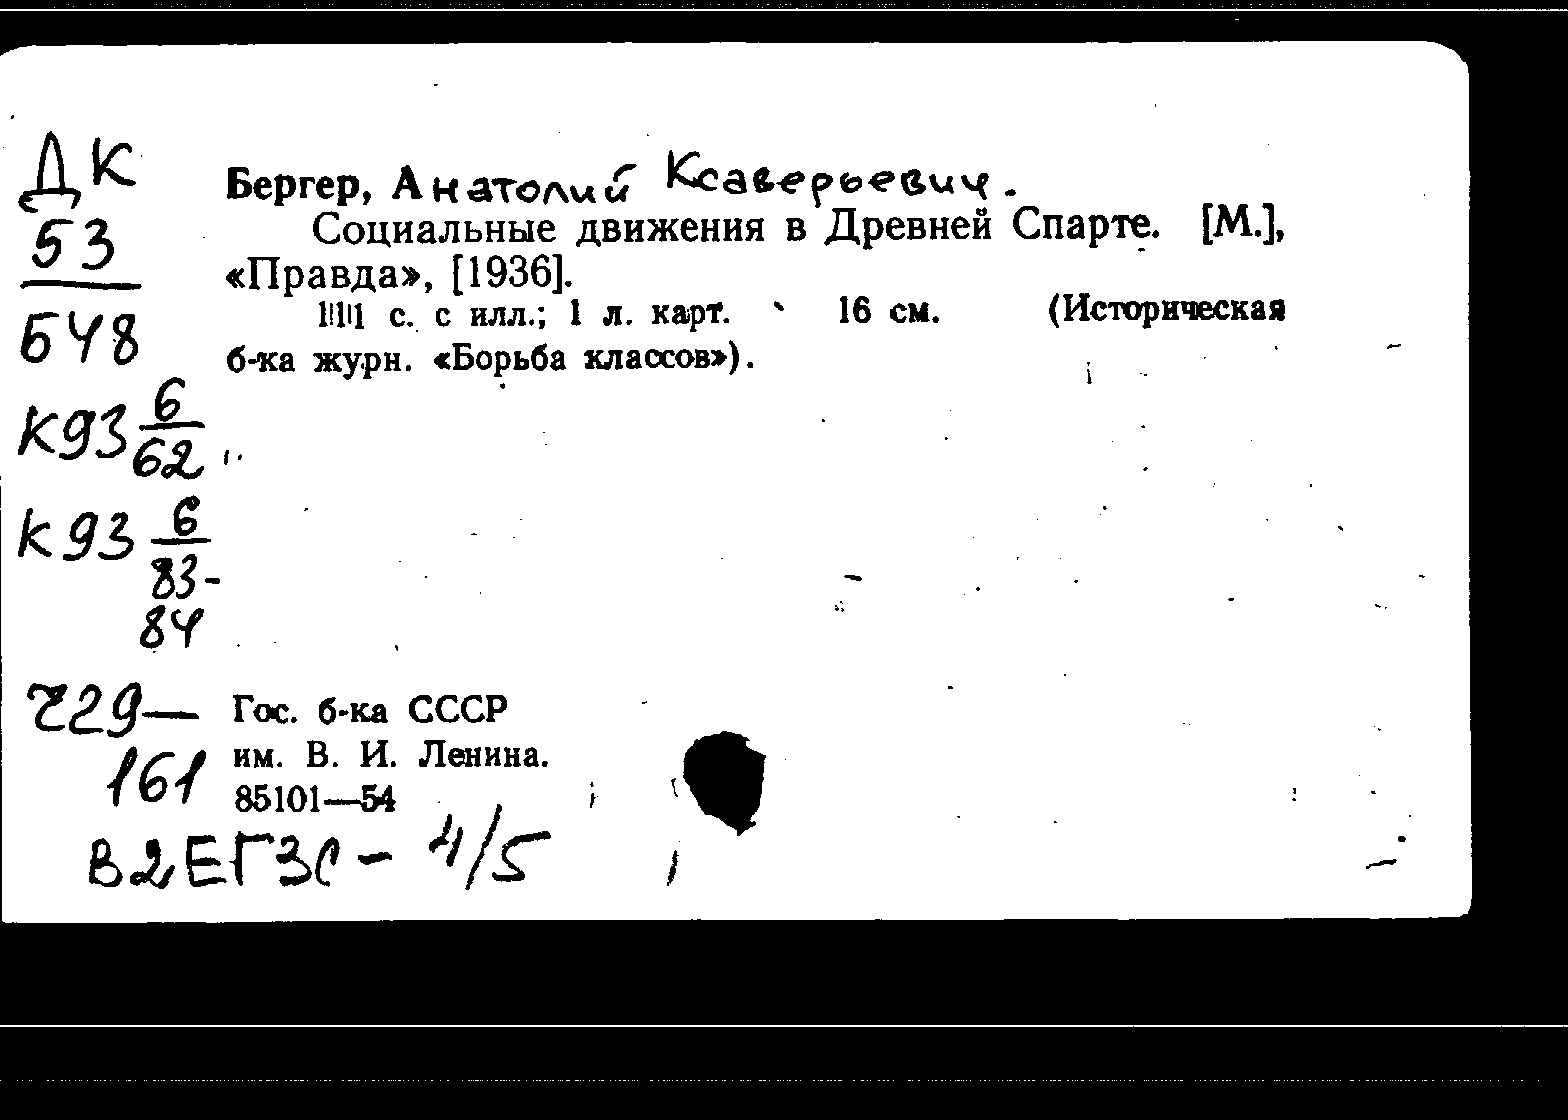 ДК
53
Б48
К93 6/62
К93 6/83-84
Бергер, Анатолий Ксаверьевич.
Социальные движения в Древней Спарте. [М.],
«Правда», [1936].
111 с. с илл.; 1 л. карт. 16 см. (Историческая
б-ка журн. «Борьба классов»).
Ч29—
161
Гос. б-ка СССР
им. В. И. Ленина.
85101—54
В2ЕГЗС - 4/5